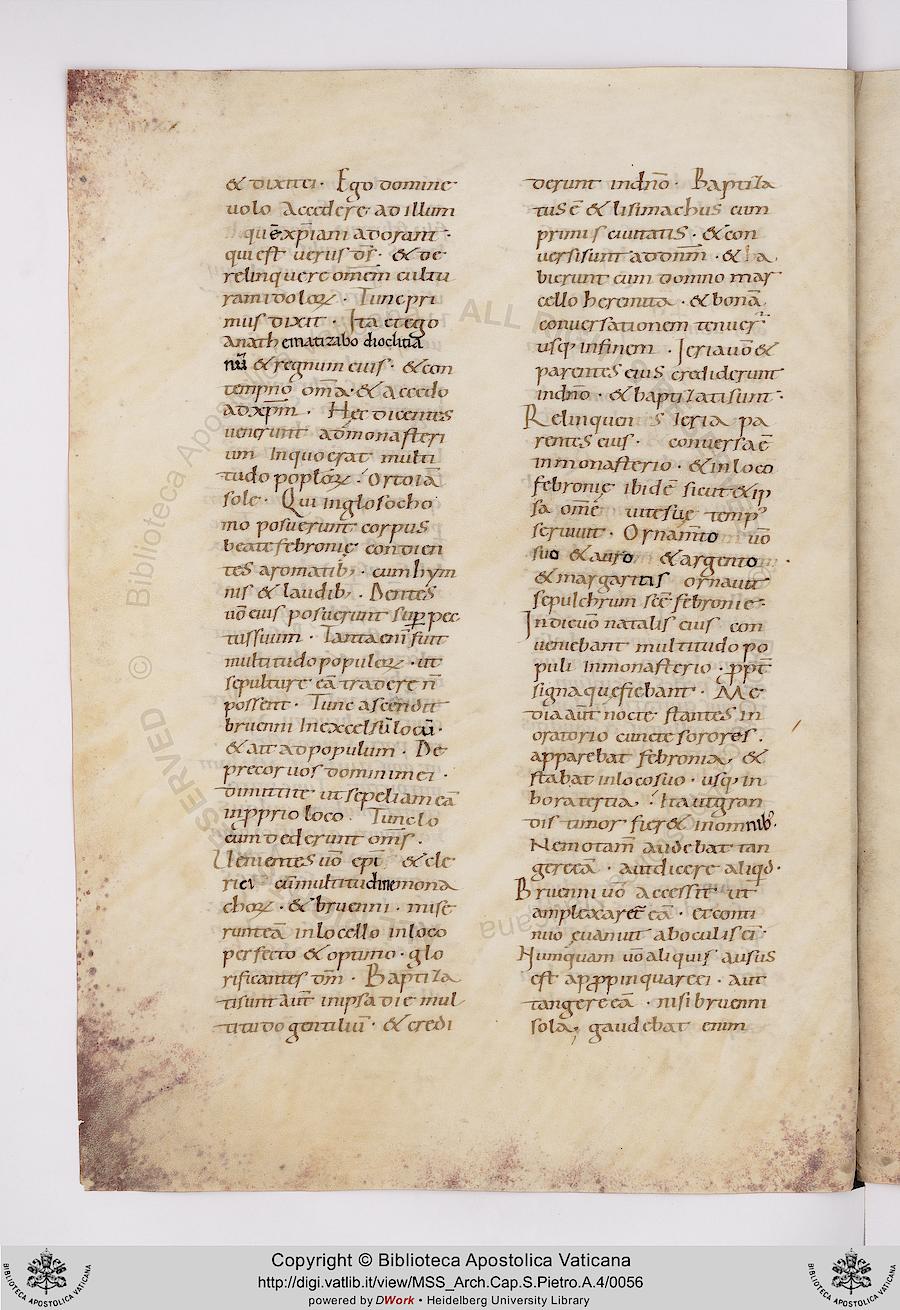 & dixit ei · Ego domine
uolo accedere ad illum
quē xp̄iani adorant ·
qui est uerus ds̄ · & de
relinquere omēm cultu
ram idoloꝝ · Tunc pri
mus dixit · Ita et ego
anathematizabo dioclitia
nū & regnum eius · & con
tempno oma · & accedo
ad xp̄m · Hęc dicentes
uenerunt ad monasteri
um In quo erat multi
tudo poploꝝ · Orto iā
sole · Qui in glosocho
mo posuerunt corpus
beate febronię condien
tes aromatib; · cum hym
nis & laudib; · Dentes
uō eius posuerunt suꝑ pec
tus suum · Tanta enī fuit
multitudo populoꝝ · ut
sepulturę eā tradere n̄
possent · Tunc ascendit
bruenni In excelsū locū ·
& ait ad populum · De
precor uos domini mei ·
dimittite ut sepeliam eā
in pprio loco · Tunc lo
cum dederunt oms̄ ·
Uenientes uō epī & cle
rici cū multitudine mona
choꝝ · & bruenni · mise
runt eā in locello in loco
perfecto & optimo · glo
rificantes dm̄ · Baptiza
ti sunt aūt in ipsa die mul
titudo gentiliū · & credi
derunt in dnō · Baptiza
tus ē & lisimachus cum
primis ciuitatis · & con
uersi sunt ad dnm̄ · &
bierunt cum domno mar
cello heremita · & bonā
conuersationem tenuer̄
usq; in finem · Ieria uō &
parentes eius crediderunt
in dnō · & baptizati sunt ·
Relinquen s Ieria pa
rentes eius · conuersa ē
in monasterio · & in loco
febronię ibidē sicut & ip
sa omē uite suę temp'
seruiuit · Ornamto uō
suo & auro & argento ·
& margaritis ornauit
sepulchrum scē febronie ·
In die uō natalis eius con
ueniebant multitudo po
puli In monasterio · ppt̄
signa que fiebant · Me
dia aūt nocte stantes in
oratorio cuncte sorores ·
apparebat febronia, &
stabat in loco suo · usq; in
hora tertia · Ita ut gran
dis timor fier& in omnib; ·
Nemo tam audebat tan
gere eā · aut dicere aliqd ·
Bruenni uō accessit ut
amplexar& eā · et conti
nuo euanuit ab oculis ei'
Numquam uō aliquis ausus
est appropinquare ei · aut
tangere eā · nisi bruenni
sola, gaudebat enim
Copyright © Biblioteca Apostolica Vaticana
http://digi.vatlib.it/view/MSS_Arch.Cap.S.Pietro.A.4/0056
powered by DWork • Heidelberg University Library